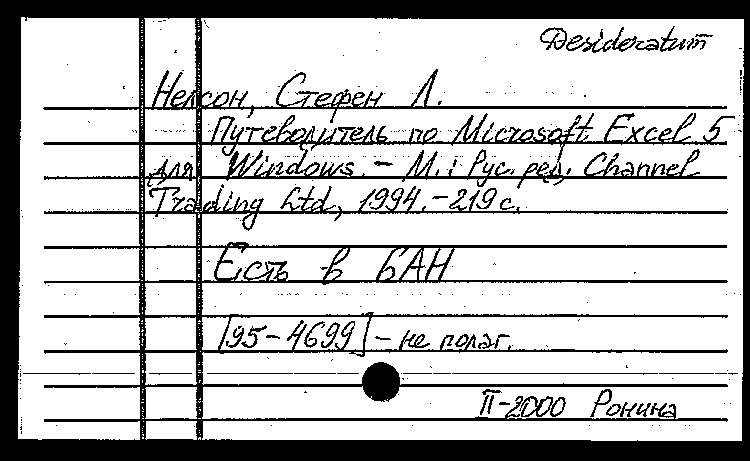 Desideratum
Нелсон, Стефен Л.
Путеводитель по Microsoft Excel 5
для Windows. - М.: Рус. ред. Channel
Trading Ltd, 1994. - 219 с.
Есть в БАН
[95-4699] - не полаг.
II-2000 Ронина